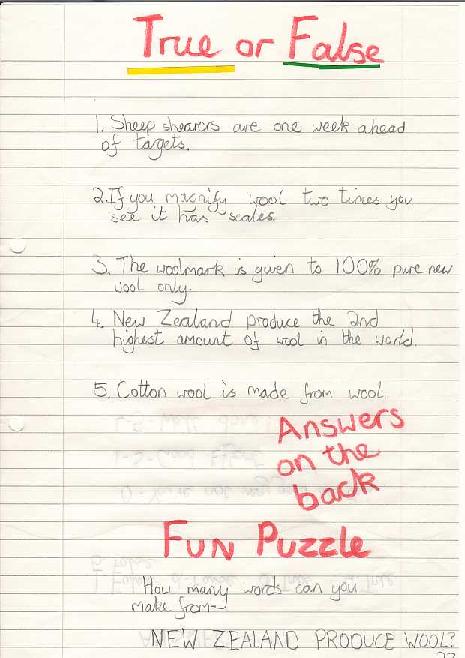 True or False
1. Sheep shearors are one week ahead
of targets.
2. If you magnify wool two times you
see it has scales.
3. The woolmark is given to 100% pure new
wool only.
4. New Zealand produce the 2nd
highest amount of wool in the world.
5. Cotton wool is made from wool
Answers
on the
back
FUN PUZZLE
How many words can you
make from-
NEW ZEALAND PRODUCE WOOL?